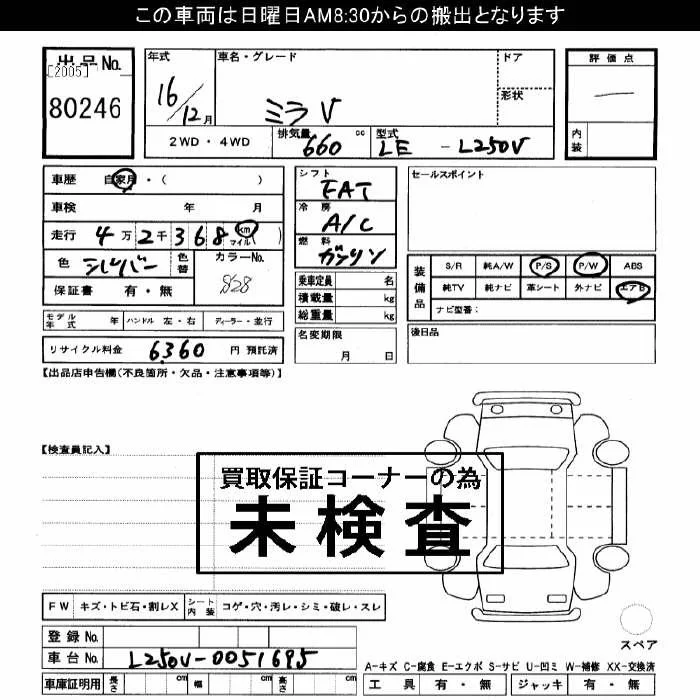 この車両は日曜日AM8:30からの搬出となります
出品No.
[2005]
80246
年式
16/12月
車名・グレード
ミラV
ドア
形状
2WD・4WD
排気量
660 cc
型式
LE - L250V
評価点
—
内装
車歴 自家用・( )
車検 年 月
走行 4万2千368 km マイル ( )
色 シルバー
色替
カラーNo.
S28
保証書 有・無
モデル年式 年
ハンドル 左・右
ディーラー・並行
リサイクル料金 6360 円 預託済
シフト
FAT
冷房
A/C
燃料
ガソリン
乗車定員 名
積載量 kg
総重量 kg
名変期限
月 日
セールスポイント
装備品
S/R 純A/W P/S P/W ABS
純TV 純ナビ 革シート 外ナビ エアB
ナビ型番:
後日品
【出品店申告欄(不良箇所・欠品・注意事項等)】
【検査員記入】
買取保証コーナーの為
未検査
FW キズ・トビ石・割レX
シート内装 コゲ・穴・汚レ・シミ・破レ・スレ
登録No.
車台No. L250V-0051695
車庫証明用 長さ cm 幅 cm 高さ cm
スペア
A-キズ C-腐食 E-エクボ S-サビ U-凹ミ W-補修 XX-交換済
工具 有・無 ジャッキ 有・無